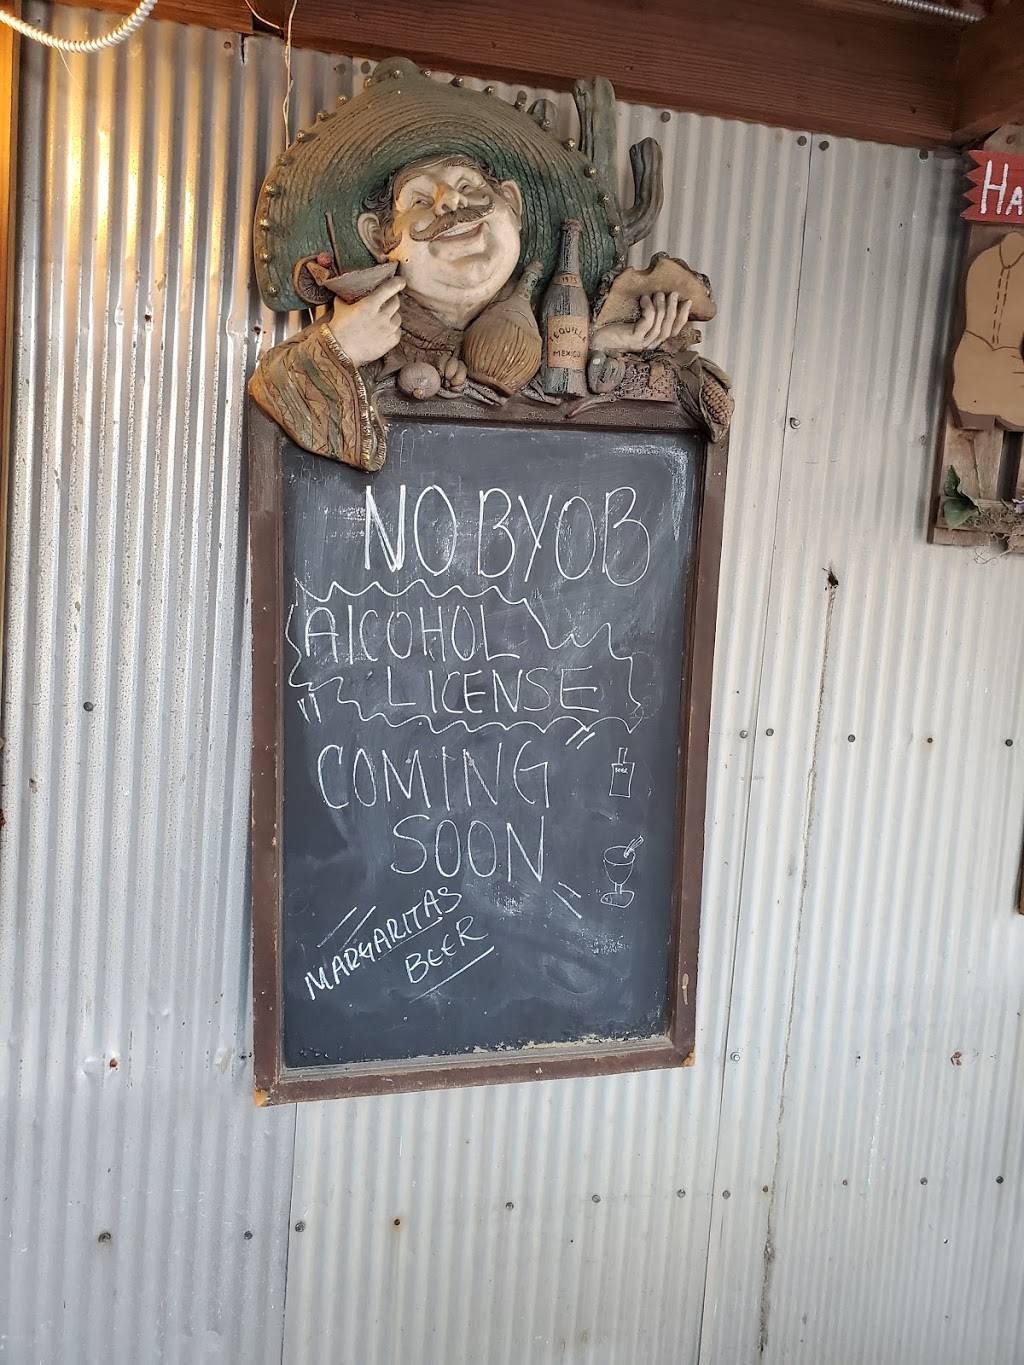 HA
TEQUILA
MEXICO
NO BYOB
AlCOHOL
LICENSE
COMING
SOON
BEER
MARGARITAS
BEER